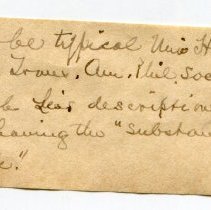 be typical Unio H
Trans. Am. Phil. Soc
Lea's description
having the "substan
e."